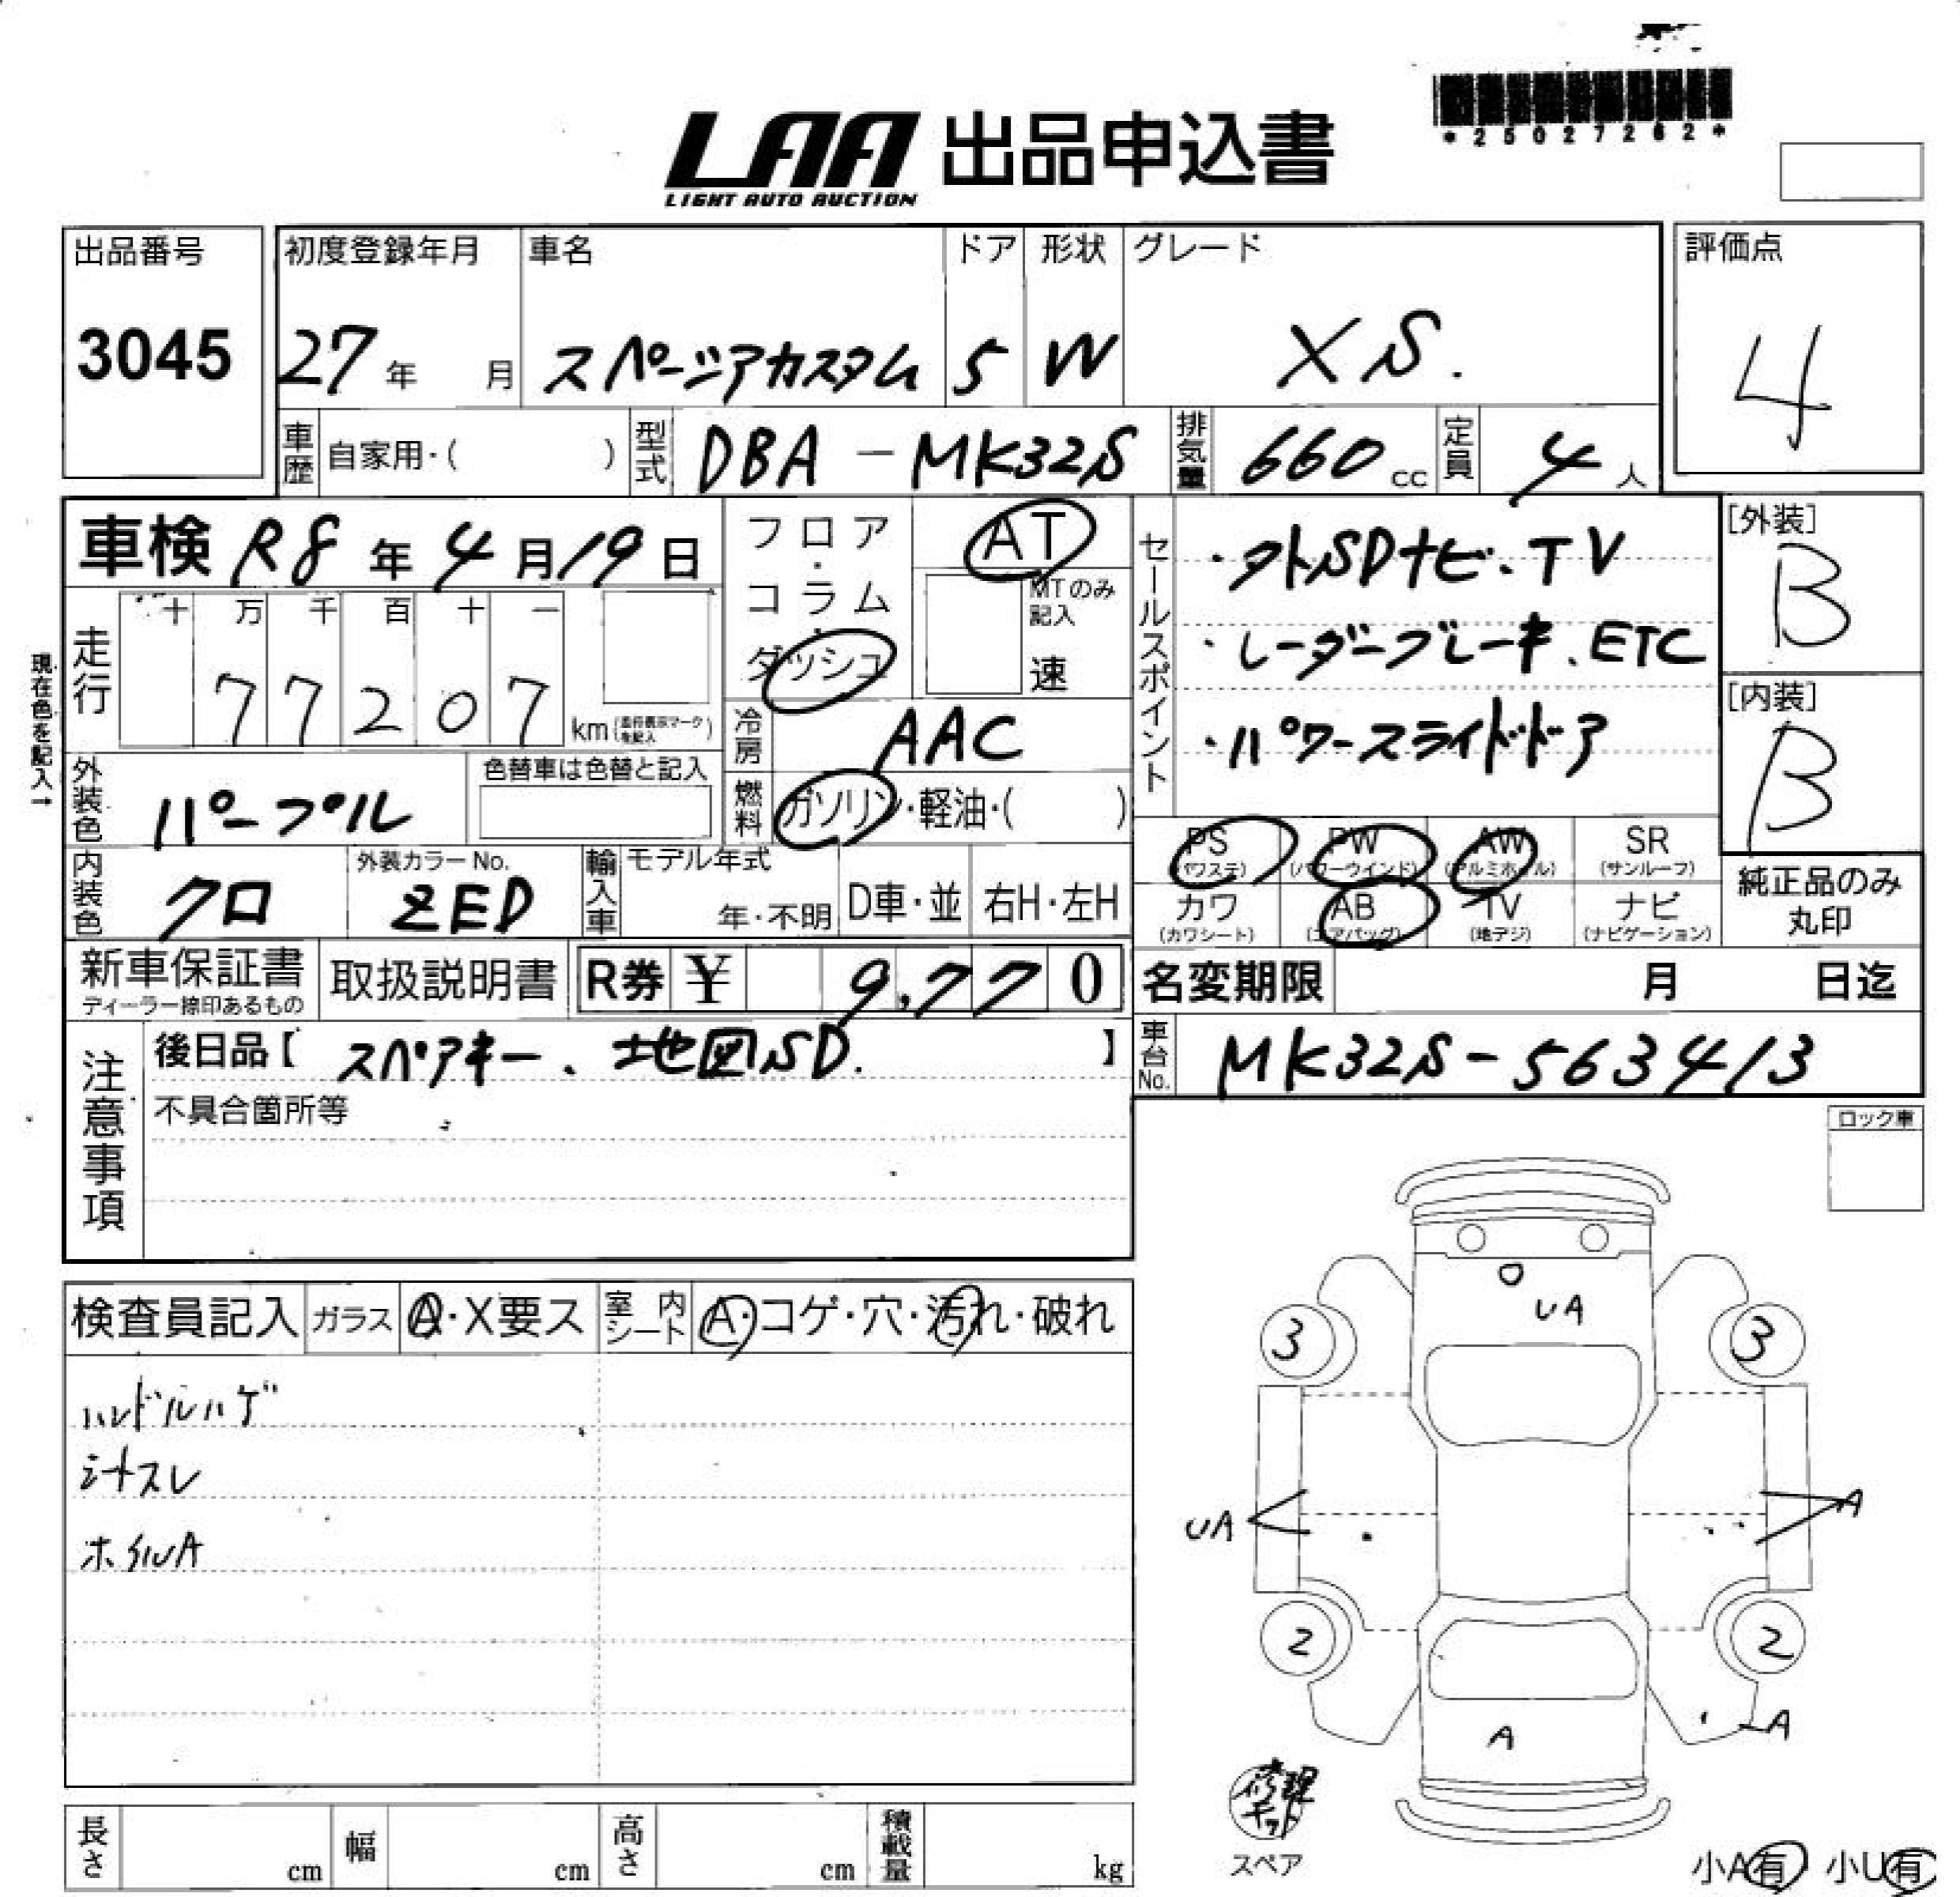 *25027262*
LAA 出品申込書
LIGHT AUTO AUCTION
出品番号 3045
初度登録年月 27年 月
車名 スペーシアカスタム
ドア 5
形状 W
グレード XS.
評価点 4
車歴 自家用・( )
型式 DBA-MK32S
排気量 660cc
定員 4人
車検 R8年4月19日
フロア・コラム・ダッシュ
AT
MTのみ記入
速
セールスポイント
・外SDナビ、TV
・レーダーブレーキ、ETC
・パワースライドドア
[外装] B
[内装] B
現在色を記入→
走行 十万千百十一
77207 km(走行表示マークを記入)
冷房 AAC
外装色 パープル
色替車は色替と記入
燃料 ガソリン・軽油・( )
内装色 クロ
外装カラーNo. ZED
輸入車 モデル年式 年・不明 D車・並 右H・左H
PS (パワステ) PW (パワーウインド) AW (アルミホイル) SR (サンルーフ)
カワ (カワシート) AB (エアバッグ) TV (地デジ) ナビ (ナビゲーション)
純正品のみ丸印
新車保証書 ディーラー捺印あるもの
取扱説明書
R券 ¥ 9,770
名変期限 月 日迄
注意事項
後日品【スペアキー、地図SD.】
不具合箇所等
車台No. MK32S-563413
ロック車
検査員記入 ガラス A・X要ス 室内シート A・コゲ・穴・汚れ・破れ
ハンドルハゲ
シートスレ
ホイルA
UA
3 3
UA A
2 2
A A
修理キット
スペア
長さ cm 幅 cm 高さ cm 積載量 kg
小A有 小U有